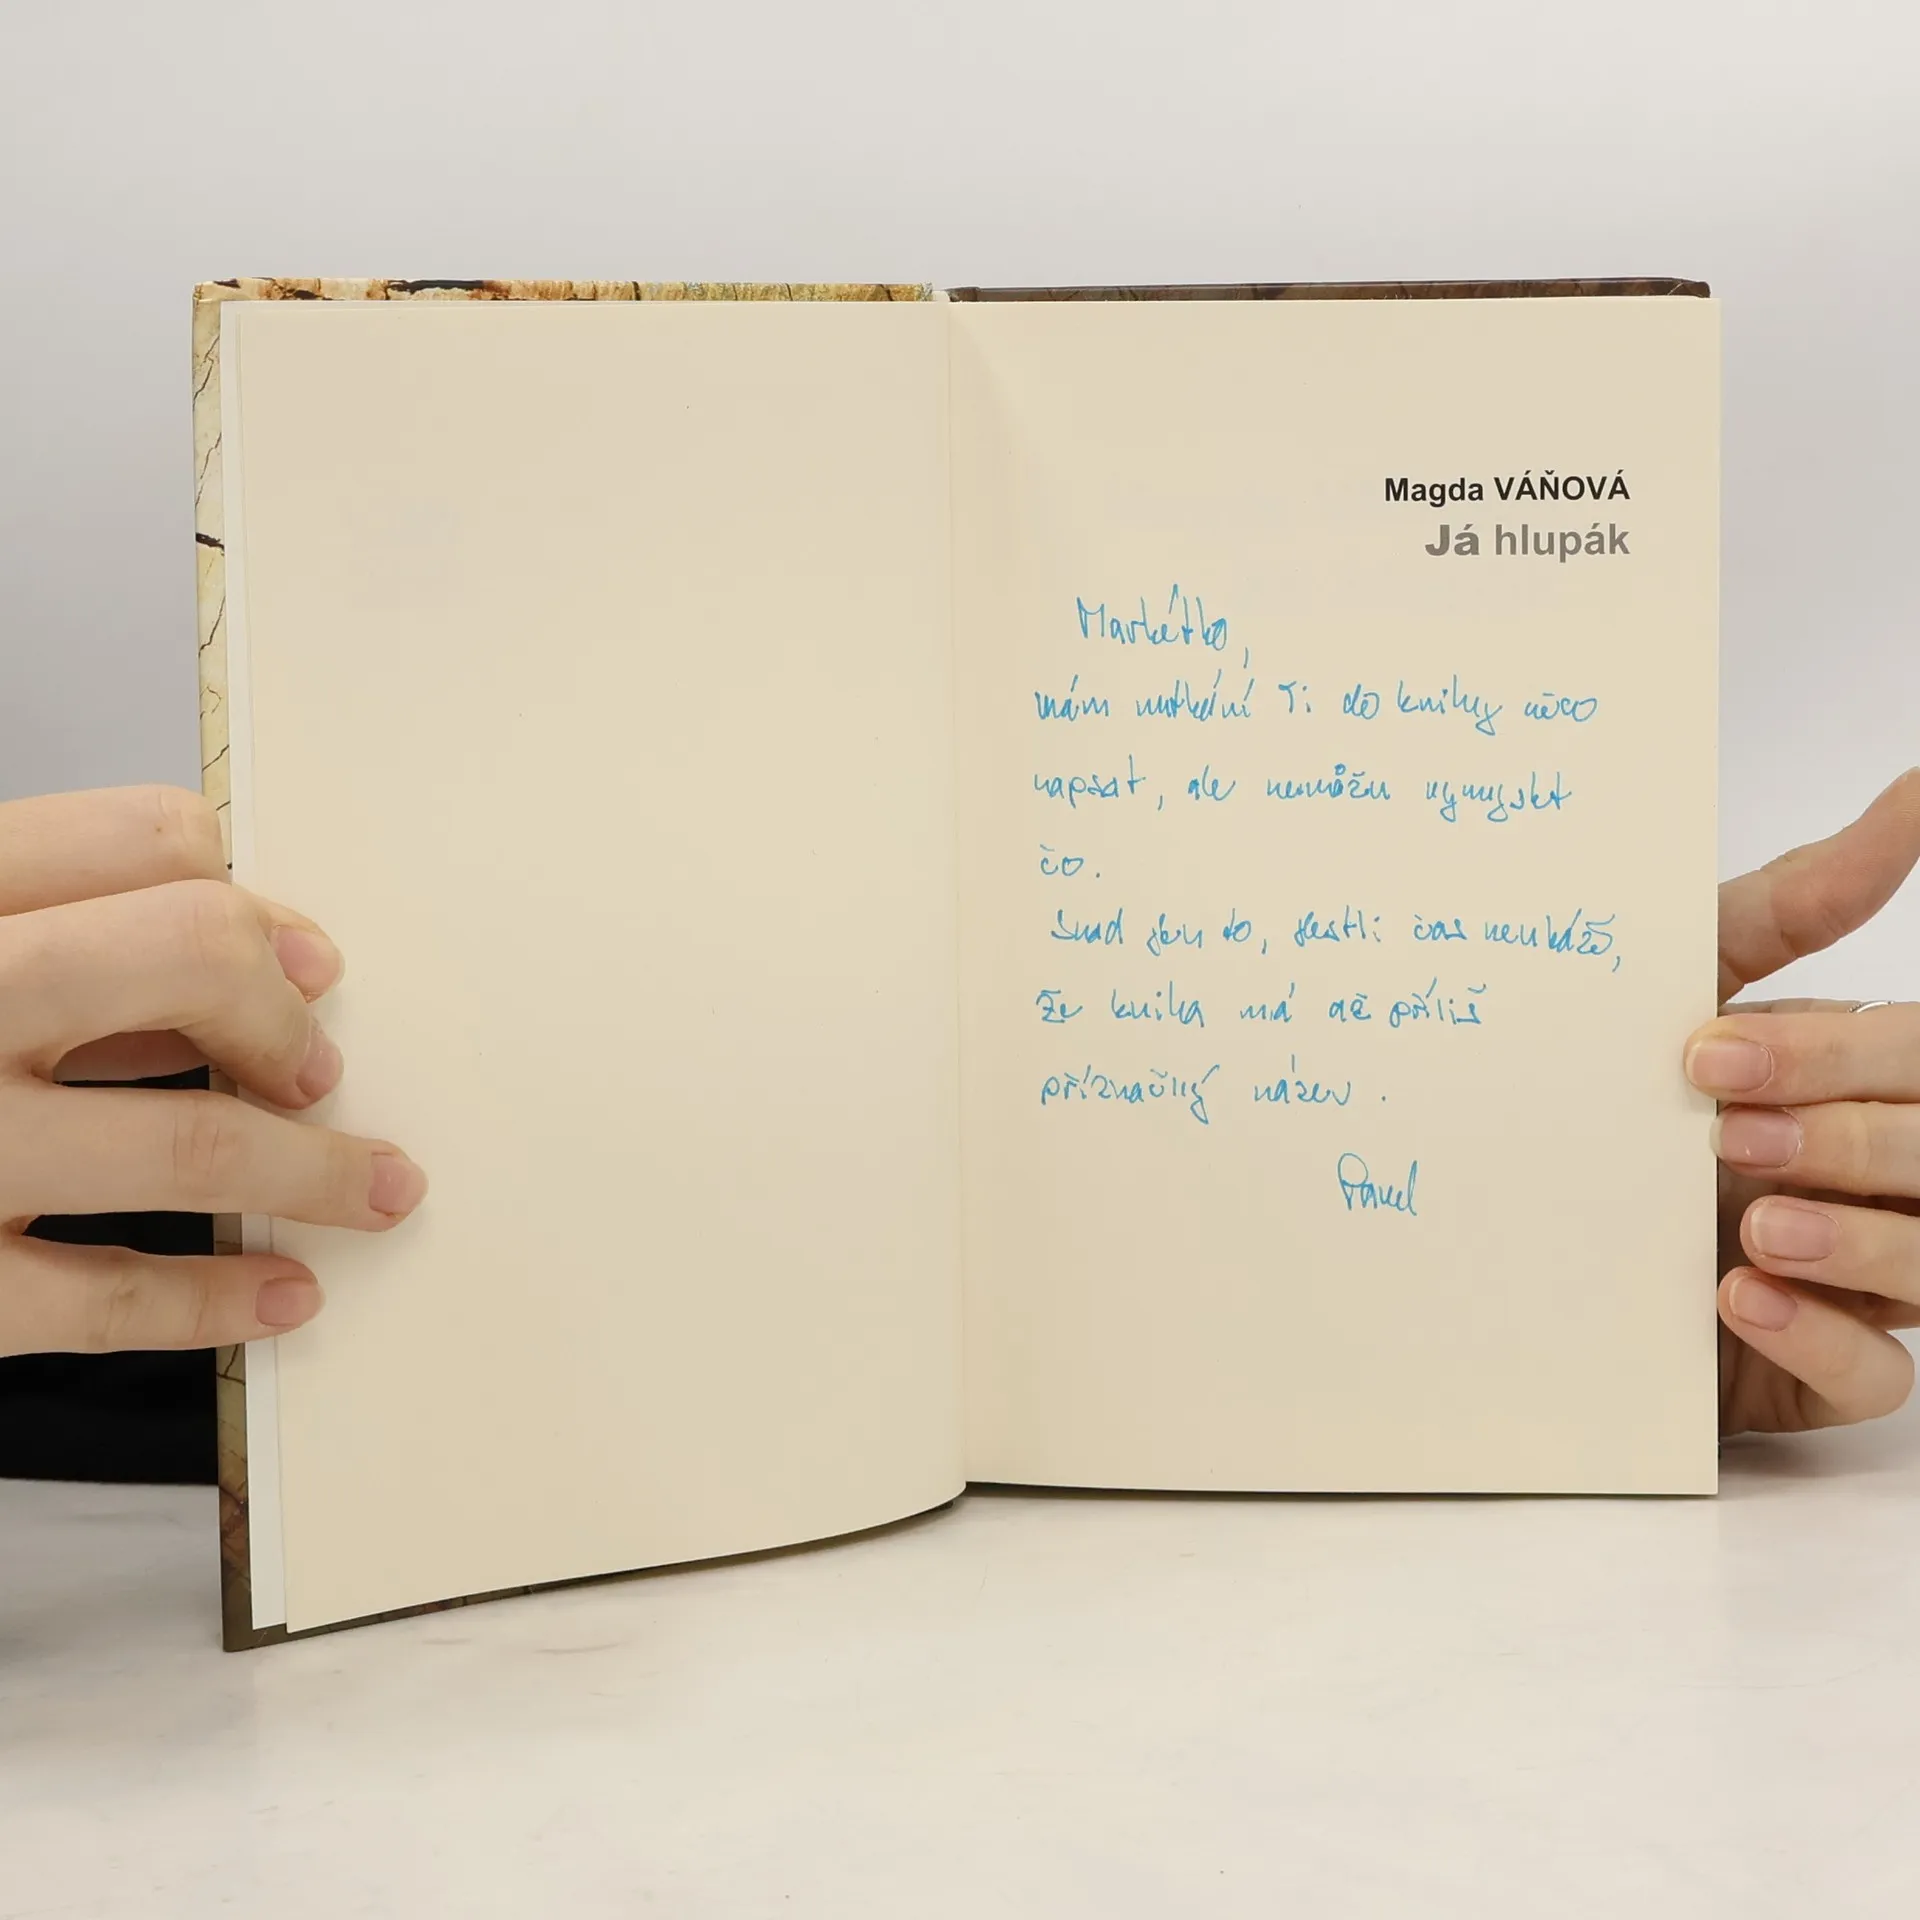 Magda VÁŇOVÁ
Já hlupák
Markétko,
mám nutkání Ti do knihy něco
napsat, ale nemůžu vymyslet
co.
Snad jen to, jestli čas neukáže,
že kniha má až příliš
příznačný název.
Pavel